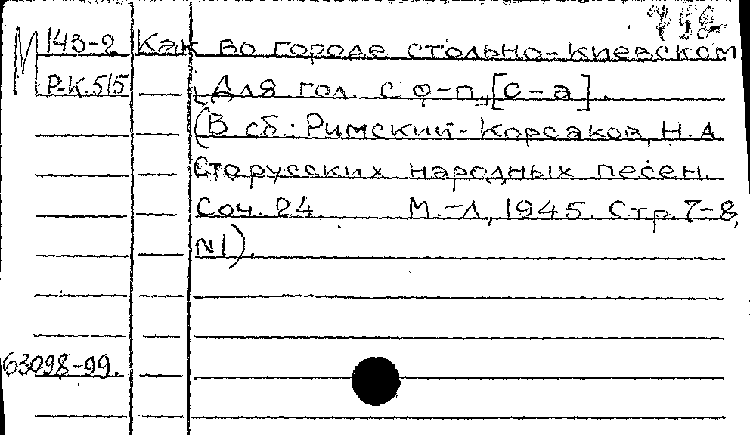 792
М 143-2 Как во городе стольно-Киевском
Р-К.515 Для гол. с ф-п. [c-a].
(В сб: Римский-Корсаков, Н.А.
Сто русских народных песен.
Соч. 24. М.-Л., 1945. Стр. 7-8,
№1).
63098-99.